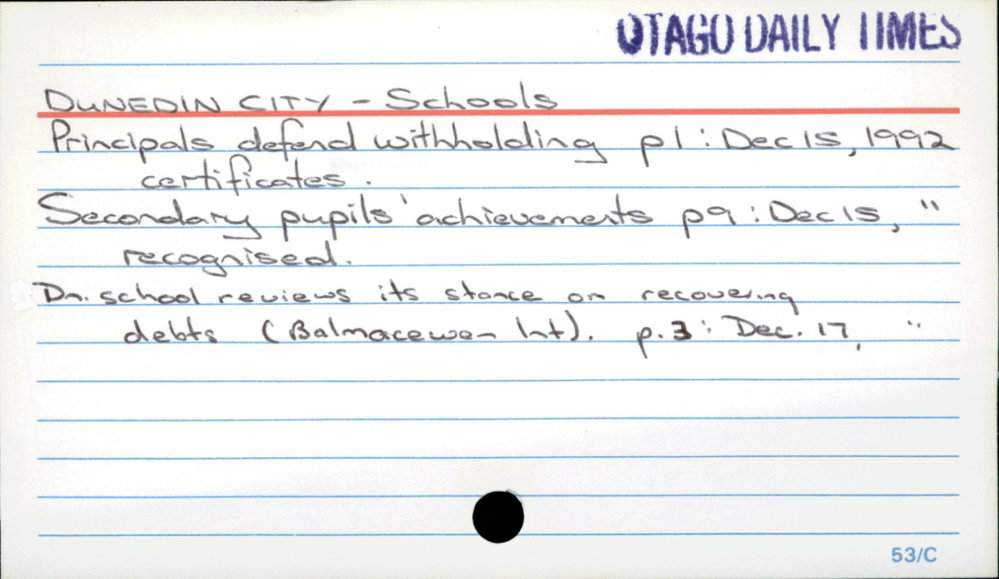 OTAGO DAILY TIMES
DUNEDIN CITY - Schools
Principals defend withholding p1 : Dec 15, 1992
certificates.
Secondary pupils' achievements p9 : Dec 15, "
recognised.
Dn. school reviews its stance on recovering
debts (Balmacewen Int). p.3 : Dec. 17, "
53/C